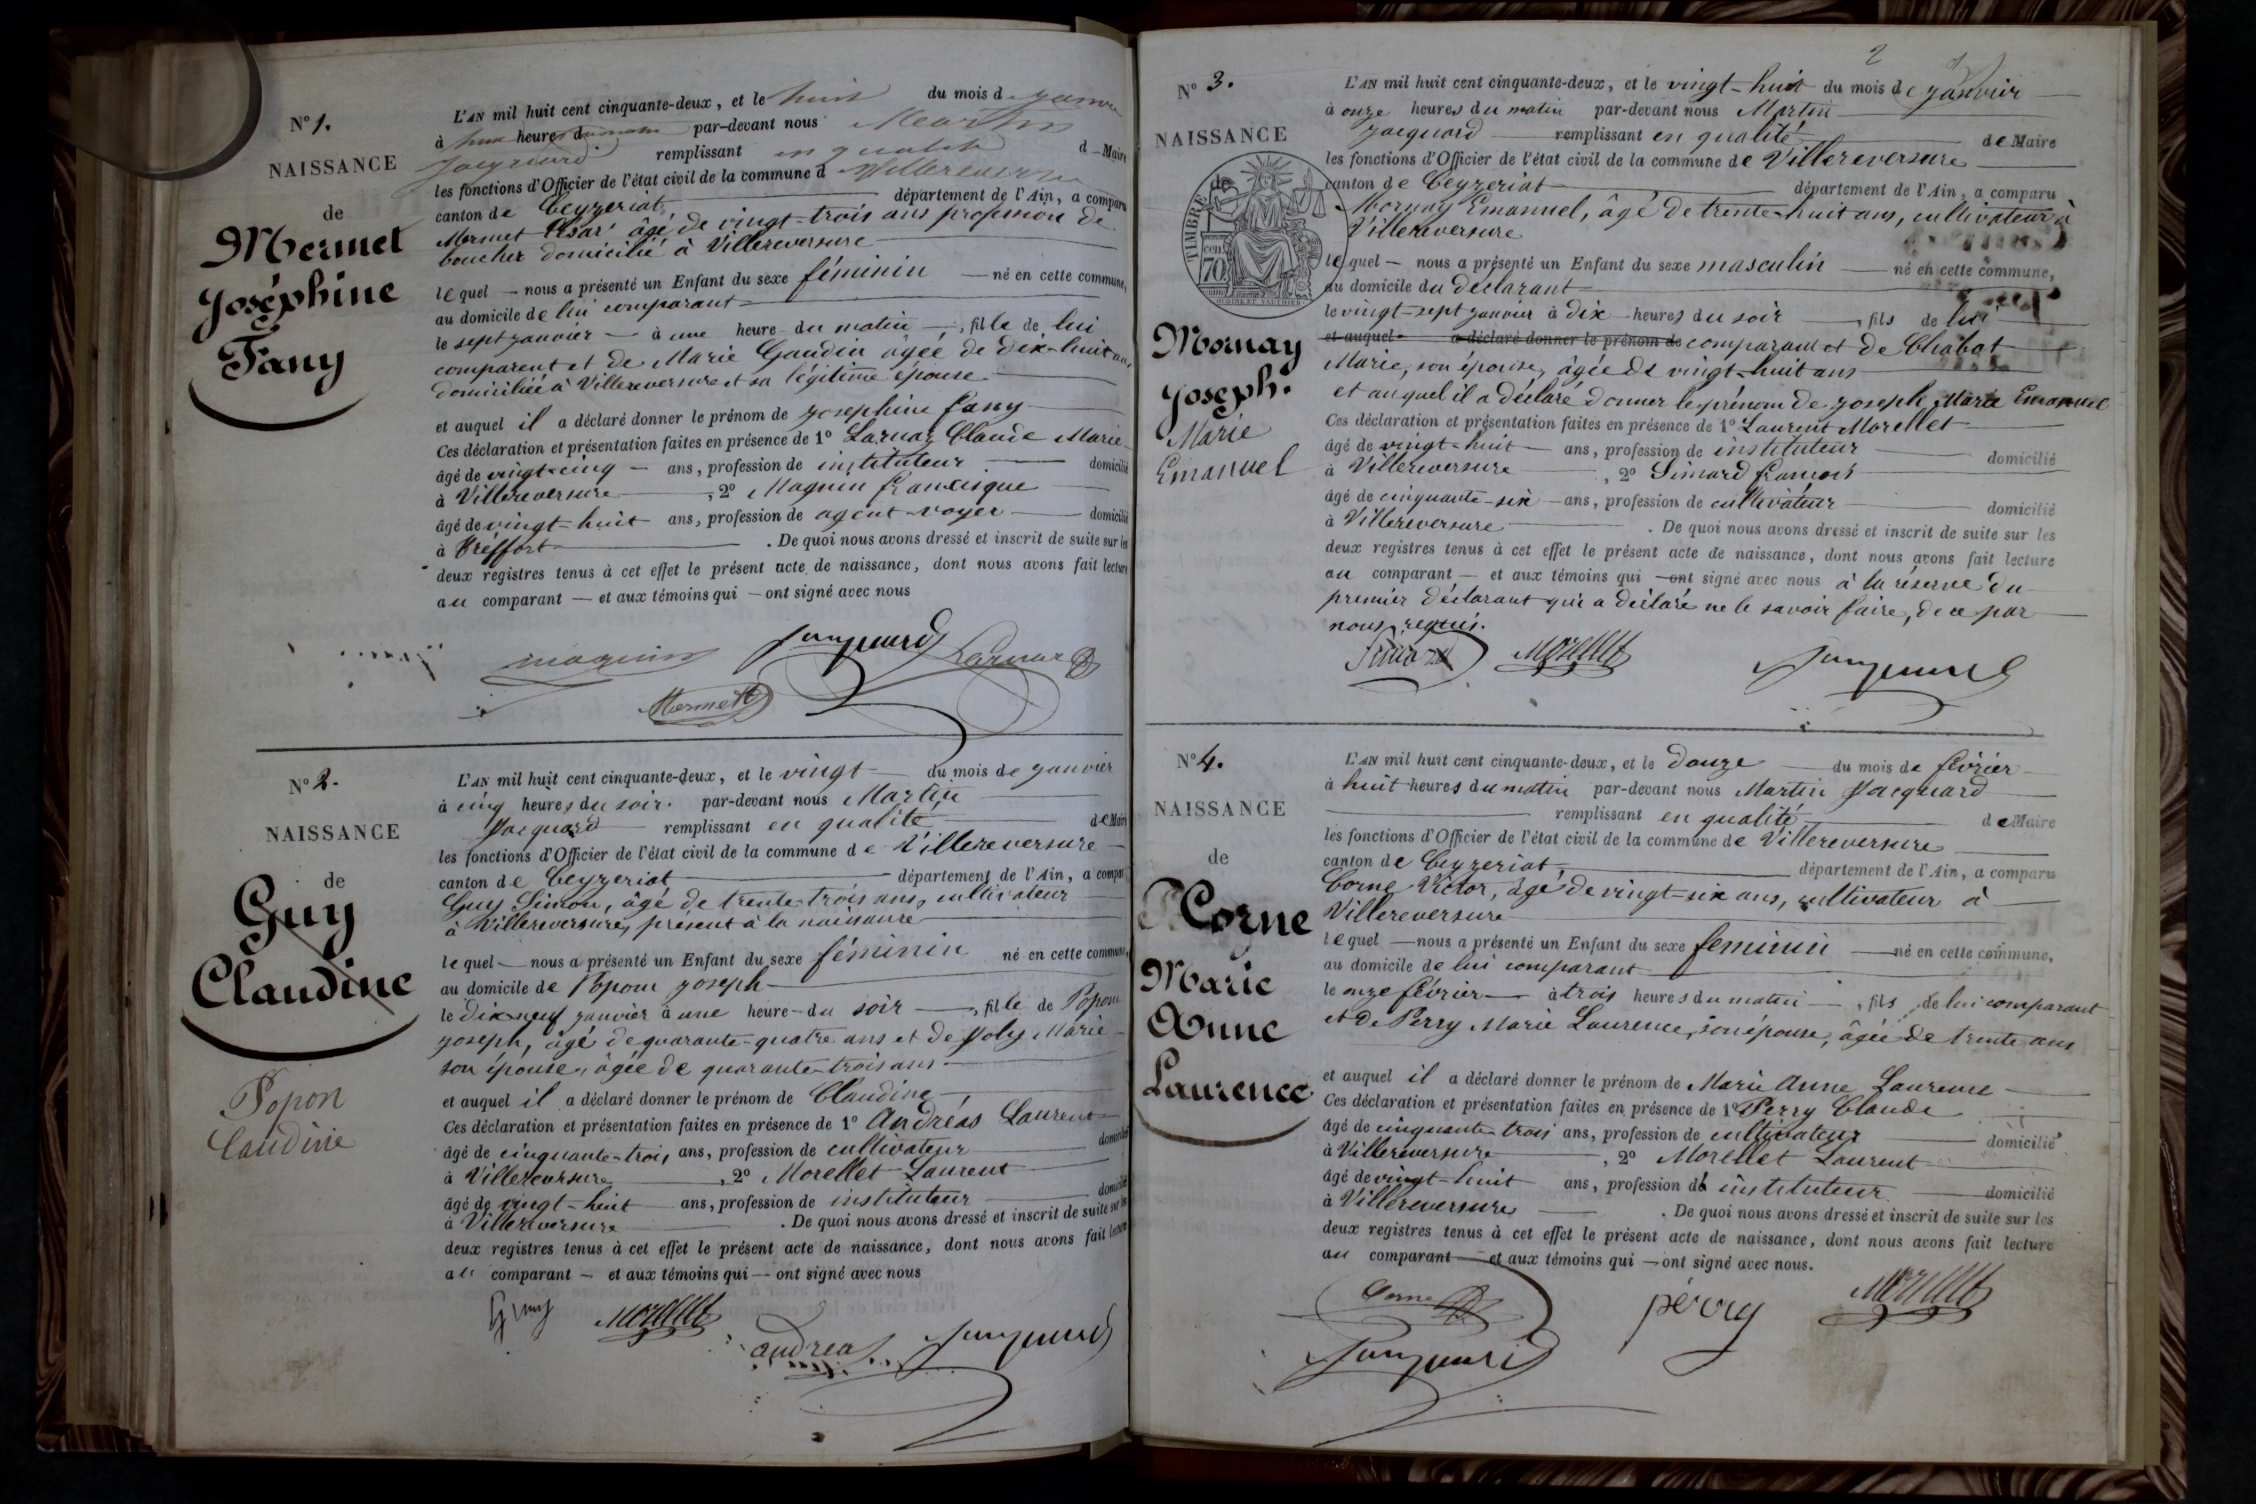 N° 1.
NAISSANCE
de
Mermet
Joséphine
Fany
L'AN mil huit cent cinquante-deux, et le huit du mois d janvier
à heures du par-devant nous Martin
Jacquard remplissant en qualité d Maire
les fonctions d'Officier de l'état civil de la commune d Villereversure
canton de Ceyzeriat département de l'Ain, a comparu
Mermet César âgé de vingt-trois ans profession de
boucher domicilié à Villereversure
lequel nous a présenté un Enfant du sexe féminin né en cette commune,
au domicile de lui comparant
le sept janvier à une heure du matin, fille de lui
comparent et de Marie Gaudin âgée de dix-huit ans
domiciliée à Villereversure et sa légitime épouse
et auquel il a déclaré donner le prénom de josephine fany
Ces déclaration et présentation faites en présence de 1° Larnaz Claude Marie
âgé de vingt-cinq ans, profession de instituteur domicilié
à Villereversure, 2° Magnin francisque
âgé de vingt-huit ans, profession de agent-voyer domicilié
à Tréffort. De quoi nous avons dressé et inscrit de suite sur les
deux registres tenus à cet effet le présent acte de naissance, dont nous avons fait lecture
au comparant et aux témoins qui ont signé avec nous
magnin Jacquard Larnaz
Mermet
N° 2.
NAISSANCE
de
Guy
Claudine
Popon
Claudine
L'AN mil huit cent cinquante-deux, et le vingt du mois de janvier
à cinq heures du soir. par-devant nous Martin
Jacquard remplissant en qualité de Maire
les fonctions d'Officier de l'état civil de la commune de Villereversure
canton de Ceyzeriat département de l'Ain, a comparu
Guy Simon, âgé de trente-trois ans, cultivateur
à Villereversure, présent à la naissance
lequel nous a présenté un Enfant du sexe féminin né en cette commune,
au domicile de Popon joseph
le dix-neuf janvier à une heure du soir, fille de Popon
joseph, âgé de quarante-quatre ans et de Joly Marie
son épouse, âgée de quarante-trois ans
et auquel il a déclaré donner le prénom de Claudine
Ces déclaration et présentation faites en présence de 1° Andréas Laurent
âgé de cinquante-trois ans, profession de cultivateur domicilié
à Villereversure, 2° Morellet Laurent
âgé de vingt-huit ans, profession de instituteur domicilié
à Villereversure. De quoi nous avons dressé et inscrit de suite sur les
deux registres tenus à cet effet le présent acte de naissance, dont nous avons fait lecture
au comparant et aux témoins qui ont signé avec nous
Guy Morellet
andreas Jacquard
2
N° 3.
NAISSANCE
de
TIMBRE
70
Mornay
Joseph.
Marie
Emanuel
L'AN mil huit cent cinquante-deux, et le vingt-huit du mois de janvier
à onze heures du matin par-devant nous Martin
Jacquard remplissant en qualité de Maire
les fonctions d'Officier de l'état civil de la commune de Villereversure
canton de Ceyzeriat département de l'Ain, a comparu
Mornay Emanuel, âgé de trente-huit ans, cultivateur à
Villereversure
lequel nous a présenté un Enfant du sexe masculin né en cette commune,
au domicile du déclarant
le vingt-sept janvier à dix heures du soir, fils de lui
et auquel a déclaré donner le prénom de comparant et de Chabat
Marie, son épouse, âgée de vingt-huit ans
et auquel il a déclaré donner le prénom de joseph Marie Emanuel
Ces déclaration et présentation faites en présence de 1° Laurent Morellet
âgé de vingt-huit ans, profession de instituteur domicilié
à Villereversure, 2° Simard françois
âgé de cinquante-six ans, profession de cultivateur domicilié
à Villereversure. De quoi nous avons dressé et inscrit de suite sur les
deux registres tenus à cet effet le présent acte de naissance, dont nous avons fait lecture
au comparant et aux témoins qui ont signé avec nous à la réserve du
premier déclarant qui a déclaré ne le savoir faire, de ce par
nous requis.
Simard Morellet Jacquard
N° 4.
NAISSANCE
de
Corne
Marie
Anne
Laurence
L'AN mil huit cent cinquante-deux, et le douze du mois de février
à huit heures du matin par-devant nous Martin Jacquard
remplissant en qualité de Maire
les fonctions d'Officier de l'état civil de la commune de Villereversure
canton de Ceyzeriat, département de l'Ain, a comparu
Corne Victor, âgé de vingt-six ans, cultivateur à
Villereversure
lequel nous a présenté un Enfant du sexe feminin né en cette commune,
au domicile de lui comparant
le onze février à trois heures du matin, fils de lui comparant
et de Perry Marie Laurence, son épouse, âgée de trente ans
et auquel il a déclaré donner le prénom de Marie Anne Laurence
Ces déclaration et présentation faites en présence de 1° Perry Claude
âgé de cinquante-trois ans, profession de cultivateur domicilié
à Villereversure, 2° Morellet Laurent
âgé de vingt-huit ans, profession de instituteur domicilié
à Villereversure. De quoi nous avons dressé et inscrit de suite sur les
deux registres tenus à cet effet le présent acte de naissance, dont nous avons fait lecture
au comparant et aux témoins qui ont signé avec nous.
Corne perry Morellet
Jacquard